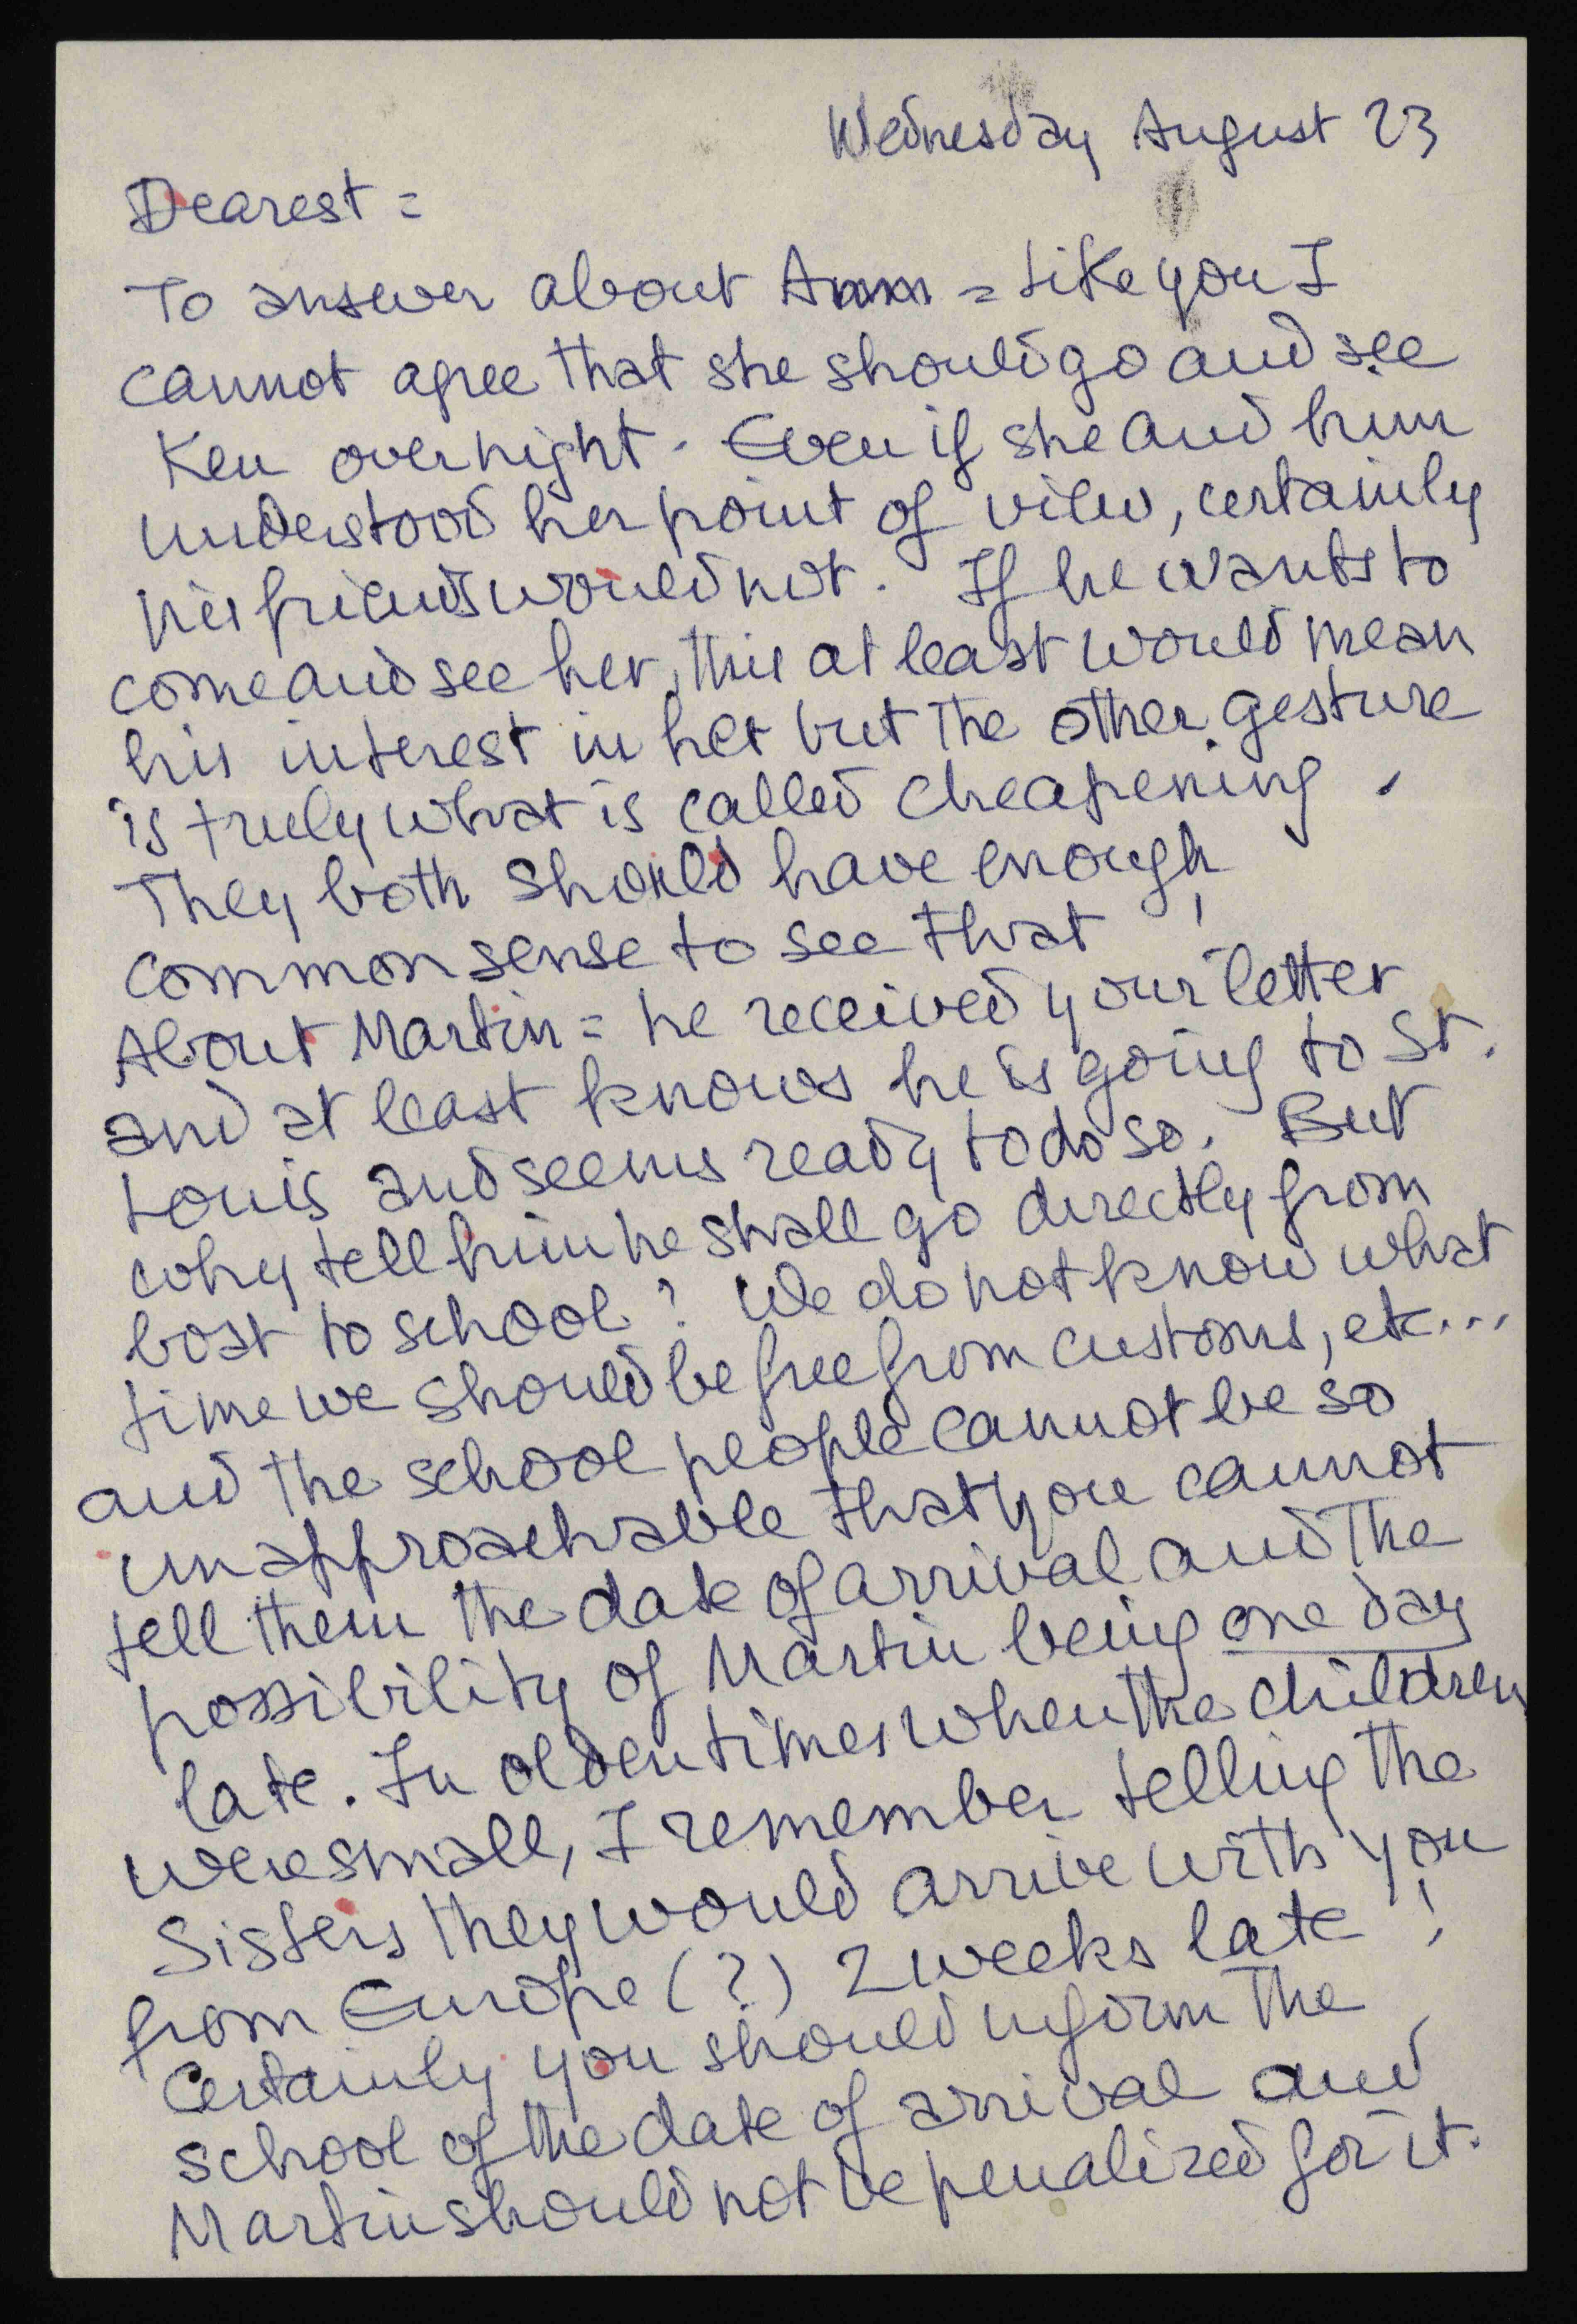 Wednesday August 23
Dearest =
To answer about Ann = Like you I
cannot agree that she should go and see
Ken overnight. Even if she and him
understood her point of view, certainly
his friends would not. If he wants to
come and see her, this at least would mean
his interest in her but the other gesture
is truly what is called cheapening.
They both should have enough
common sense to see that!
About Martin = he received your letter
and at least knows he is going to St.
Louis and seems ready to do so. But
why tell him he shall go directly from
boat to school? We do not know what
time we should be free from customs, etc...
and the school people cannot be so
unapproachable that you cannot
tell them the date of arrival and the
possibility of Martin being one day
late. In olden times when the children
were small, I remember telling the
Sisters they would arrive with you
from Europe (?) 2 weeks late!
Certainly you should inform the
school of the date of arrival and
Martin should not be penalized for it.